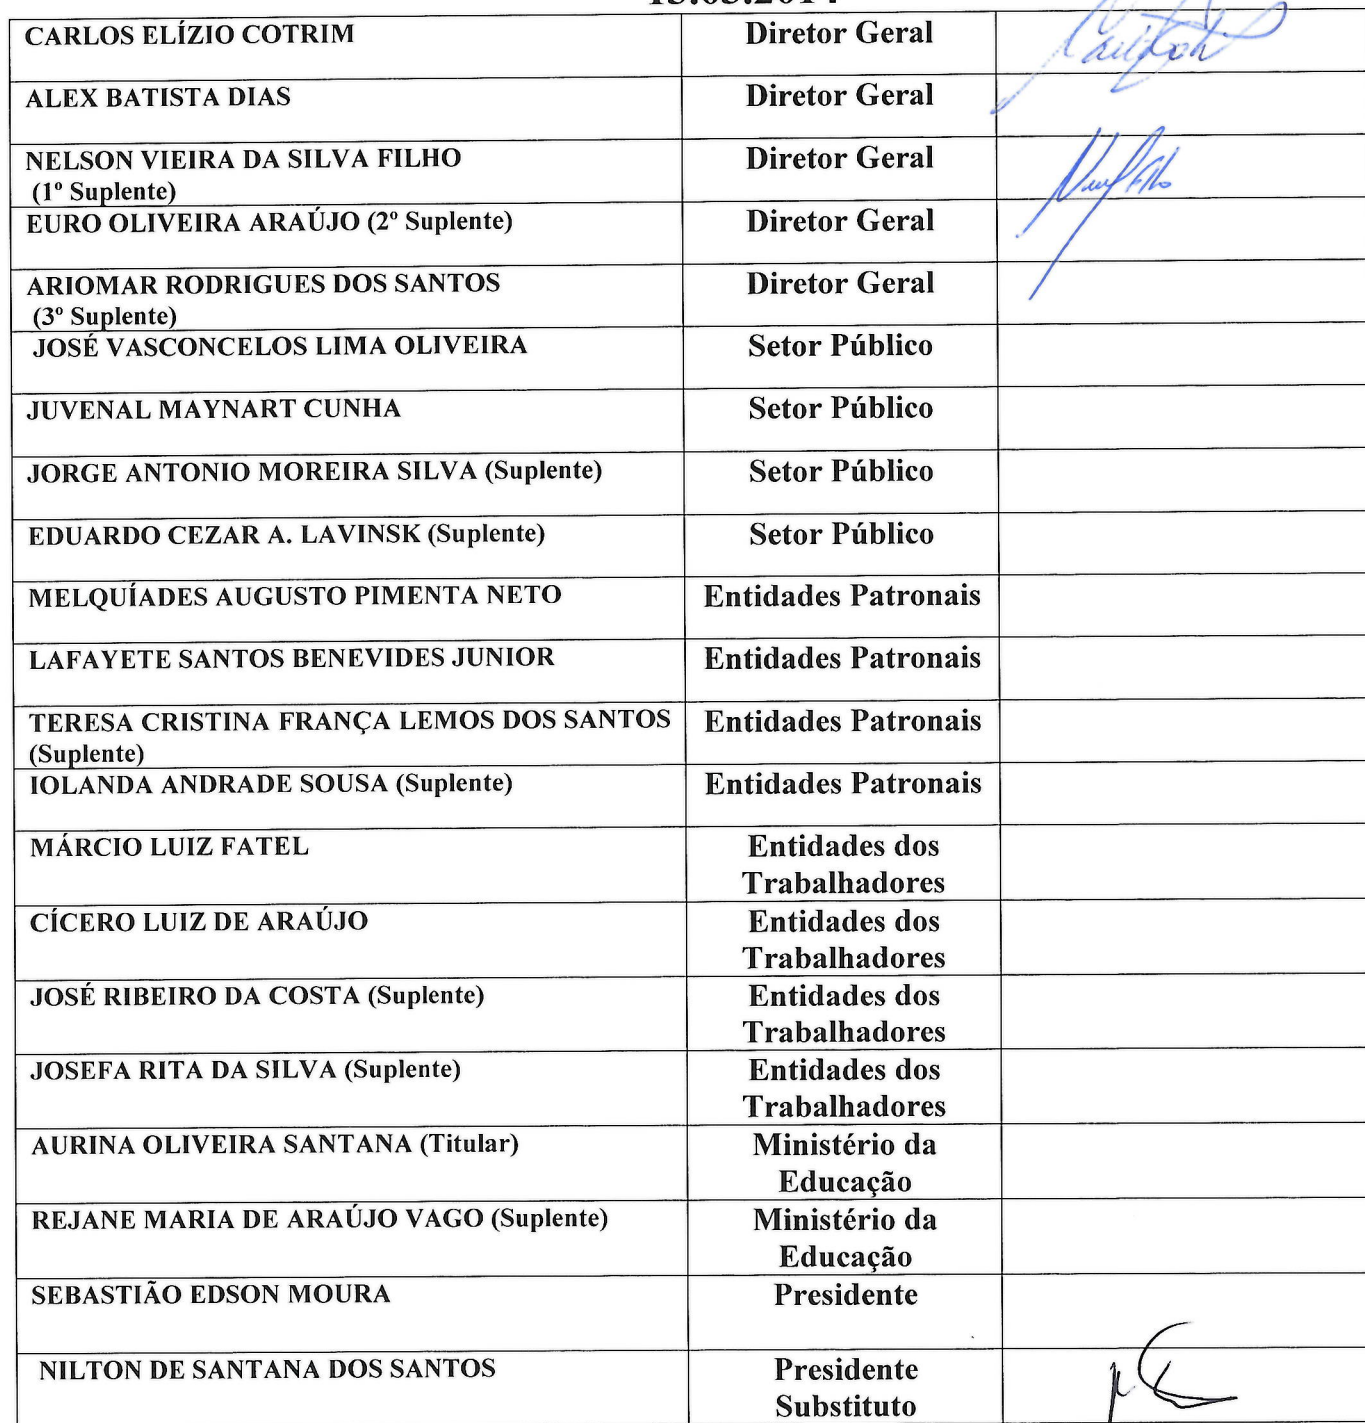 CARLOS ELÍZIO COTRIM Diretor Geral
ALEX BATISTA DIAS Diretor Geral
NELSON VIEIRA DA SILVA FILHO Diretor Geral
(1º Suplente)
EURO OLIVEIRA ARAÚJO (2º Suplente) Diretor Geral
ARIOMAR RODRIGUES DOS SANTOS Diretor Geral
(3º Suplente)
JOSÉ VASCONCELOS LIMA OLIVEIRA Setor Público
JUVENAL MAYNART CUNHA Setor Público
JORGE ANTONIO MOREIRA SILVA (Suplente) Setor Público
EDUARDO CEZAR A. LAVINSK (Suplente) Setor Público
MELQUÍADES AUGUSTO PIMENTA NETO Entidades Patronais
LAFAYETE SANTOS BENEVIDES JUNIOR Entidades Patronais
TERESA CRISTINA FRANÇA LEMOS DOS SANTOS Entidades Patronais
(Suplente)
IOLANDA ANDRADE SOUSA (Suplente) Entidades Patronais
MÁRCIO LUIZ FATEL Entidades dos
Trabalhadores
CÍCERO LUIZ DE ARAÚJO Entidades dos
Trabalhadores
JOSÉ RIBEIRO DA COSTA (Suplente) Entidades dos
Trabalhadores
JOSEFA RITA DA SILVA (Suplente) Entidades dos
Trabalhadores
AURINA OLIVEIRA SANTANA (Titular) Ministério da
Educação
REJANE MARIA DE ARAÚJO VAGO (Suplente) Ministério da
Educação
SEBASTIÃO EDSON MOURA Presidente
NILTON DE SANTANA DOS SANTOS Presidente
Substituto